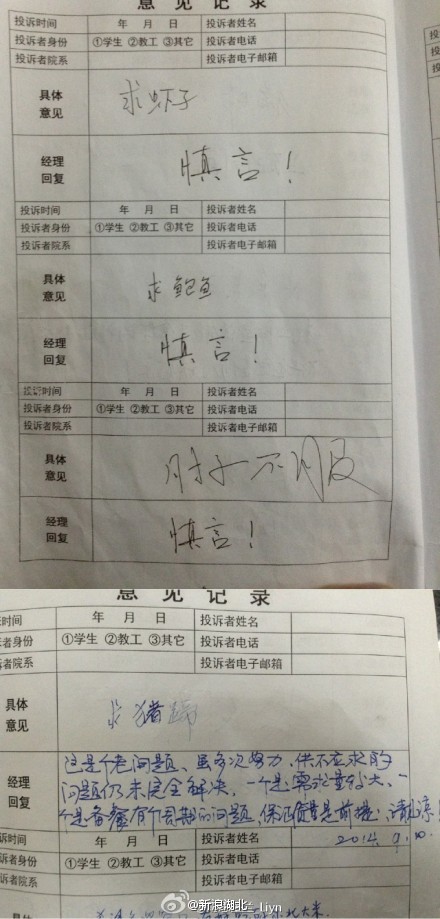 意见记录
投诉时间 年 月 日 投诉者姓名
投诉者身份 ①学生 ②教工 ③其它 投诉者电话
投诉者院系 投诉者电子邮箱
具体
意见
求虾子
经理
回复
慎言！
投诉时间 年 月 日 投诉者姓名
投诉者身份 ①学生 ②教工 ③其它 投诉者电话
投诉者院系 投诉者电子邮箱
具体
意见
求鲍鱼
经理
回复
慎言！
投诉时间 年 月 日 投诉者姓名
投诉者身份 ①学生 ②教工 ③其它 投诉者电话
投诉者院系 投诉者电子邮箱
具体
意见
肘子不服
经理
回复
慎言！
意见记录
时间 年 月 日 投诉者姓名
者身份 ①学生 ②教工 ③其它 投诉者电话
者院系 投诉者电子邮箱
具体
意见
求猪蹄
经理
回复
这是个老问题、虽多次努力，供不应求的
问题仍未完全解决，一个是需求量较大、一
个是备餐有个周期的问题，保证质量是前提，请见谅
2014.9.10.
诉时间 年 月 日 投诉者姓名
诉者身份 ①学生 ②教工 ③其它 投诉者电话
者院系 投诉者电子邮箱
@新浪湖北-Liyn